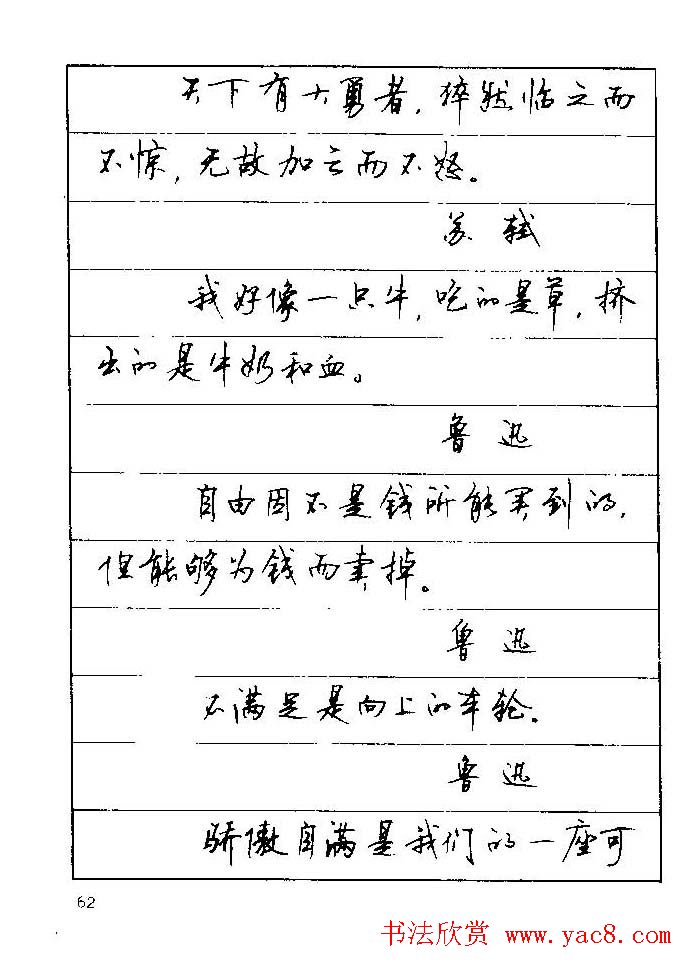 天下有大勇者，猝然临之而
不惊，无故加之而不怒。
苏轼
我好像一只牛，吃的是草，挤
出的是牛奶和血。
鲁迅
自由固不是钱所能买到的，
但能够为钱而卖掉。
鲁迅
不满足是向上的车轮。
鲁迅
骄傲自满是我们的一座可
62
书法欣赏 www.yac8.com